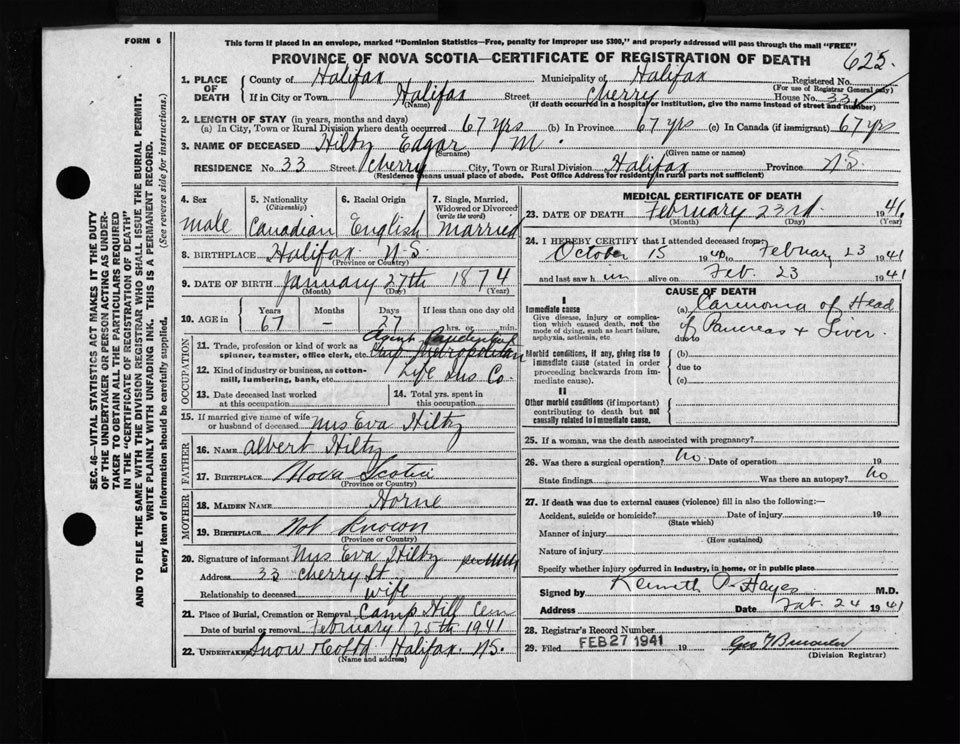 FORM 6
This form if placed in an envelope, marked "Dominion Statistics—Free, penalty for improper use $300," and properly addressed will pass through the mail "FREE"
PROVINCE OF NOVA SCOTIA—CERTIFICATE OF REGISTRATION OF DEATH 625
1. PLACE OF DEATH County of Halifax Municipality of Halifax Registered No.
(For use of Registrar General only)
If in City or Town Halifax Street Cherry House No. 33
(Name) (If death occurred in a hospital or institution, give the name instead of street and number)
2. LENGTH OF STAY (in years, months and days)
(a) In City, Town or Rural Division where death occurred 67 yrs (b) In Province 67 yrs (c) In Canada (if immigrant) 67 yrs
3. NAME OF DECEASED Hiltz Edgar M.
(Surname) (Given name or names)
RESIDENCE No. 33 Street Cherry City, Town or Rural Division Halifax Province N.S.
(Residence means usual place of abode. Post Office Address for residents in rural parts not sufficient)
4. Sex male
5. Nationality (Citizenship) Canadian
6. Racial Origin English
7. Single, Married, Widowed or Divorced (write the word) Married
8. BIRTHPLACE Halifax N.S.
(Province or Country)
9. DATE OF BIRTH January 27th 1874
(Month) (Day) (Year)
10. AGE in Years 67 Months – Days 27 If less than one day old hrs. or min.
OCCUPATION
11. Trade, profession or kind of work as spinner, teamster, office clerk, etc. Agent Metropolitan
12. Kind of industry or business, as cotton-mill, lumbering, bank, etc. Life Ins Co.
13. Date deceased last worked at this occupation
14. Total yrs. spent in this occupation
15. If married give name of wife or husband of deceased Mrs Eva Hiltz
FATHER
16. NAME Albert Hiltz
17. BIRTHPLACE Nova Scotia
(Province or Country)
MOTHER
18. MAIDEN NAME Horne
19. BIRTHPLACE Not Known
(Province or Country)
20. Signature of informant Mrs Eva Hiltz
Address 33 Cherry St
Relationship to deceased wife
21. Place of Burial, Cremation or Removal Camp Hill Cem
Date of burial or removal February 25th 1941
22. UNDERTAKER Snow & Co Ltd Halifax N.S.
(Name and address)
MEDICAL CERTIFICATE OF DEATH
23. DATE OF DEATH February 23rd 1941
(Month) (Day) (Year)
24. I HEREBY CERTIFY that I attended deceased from:
October 15 1940 to February 23 1941
and last saw him alive on Feb. 23 1941
CAUSE OF DEATH
I
Immediate cause
Give disease, injury or complication which caused death, not the mode of dying, such as heart failure, asphyxia, asthenia, etc.
(a) Carcinoma of Head
due to of Pancreas & Liver.
Morbid conditions, if any, giving rise to immediate cause (stated in order proceeding backwards from immediate cause).
(b)
due to
(c)
II
Other morbid conditions (if important) contributing to death but not causally related to immediate cause.
25. If a woman, was the death associated with pregnancy?
26. Was there a surgical operation? No Date of operation 19
State findings Was there an autopsy? No
27. If death was due to external causes (violence) fill in also the following:—
Accident, suicide or homicide? Date of injury 19
(State which)
Manner of injury
(How sustained)
Nature of injury
Specify whether injury occurred in industry, in home, or in public place
Signed by Kenneth Hayes M.D.
Address Date Feb. 24 1941
28. Registrar's Record Number
29. Filed FEB 27 1941 19
(Division Registrar)
SEC. 46—VITAL STATISTICS ACT MAKES IT THE DUTY
OF THE UNDERTAKER OR PERSON ACTING AS UNDER-
TAKER TO OBTAIN ALL THE PARTICULARS REQUIRED
IN THE "CERTIFICATE OF REGISTRATION OF DEATH"
AND TO FILE THE SAME WITH THE DIVISION REGISTRAR WHO SHALL ISSUE THE BURIAL PERMIT.
WRITE PLAINLY WITH UNFADING INK. THIS IS A PERMANENT RECORD.
Every item of information should be carefully supplied. (See reverse side for instructions.)